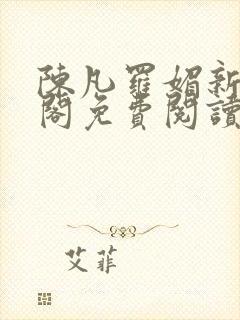 陳凡羅媚新
閣免費閱讀
艾菲